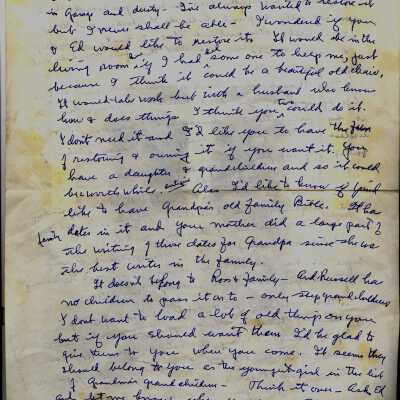 in Gary and dusty - I've always wanted to restore it
but I never shall be able - I wondered if you
& Ed would like to restore it. It'd be in the
living room if I had some one to help me, just
because I think it could be a beautiful old chair.
It would take work but with a husband who knows
how & does things I think you two could do it.
I don't need it and I'd like you to have the fun
of restoring & owning it if you want it. You
have a daughter & grandchildren and so it could
be worth while. Also I'd like to know if you'd
like to have Grandpa's old family Bible. It has
family dates in it and your mother did a large part of
the writing of these dates for Grandpa since she was
the best writer in the family.
It doesn't belong to Ross & family - And Russell has
no children to pass it on to - only step grandchildren
I don't want to load a lot of old things on you
but if you should want them I'd be glad to
give them to you when you come. It seems they
should belong to you as the youngest girl in the list
of Grandma's grandchildren - Think it over - Ask Ed
and let me know